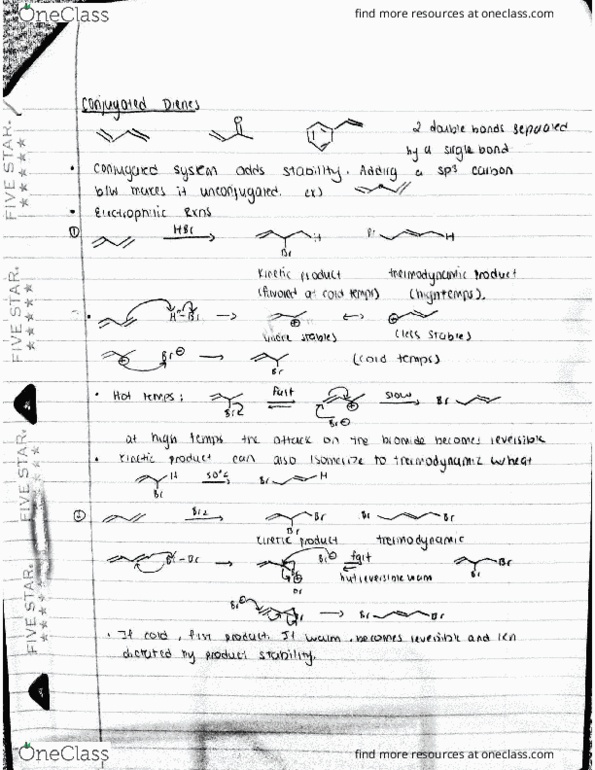 OneClass
find more resources at oneclass.com
Conjugated Dienes
O
2 double bonds separated
by a single bond
• Conjugated system adds stability. Adding a sp3 carbon
b/w makes it unconjugated. ex)
• Electrophilic Rxns
① HBr H Br H
Br
Kinetic product thermodynamic product
(favored at cold temps) (high temps).
• H-Br → ↔
(more stable) (less stable)
Br⊖ → (cold temps)
Br
• Hot temps: fast slow Br
Br
Br⊖
at high temps the attack on the bromide becomes reversible
• Kinetic product can also isomerize to thermodynamic w/heat
H 50°C Br H
Br
② Br2 Br Br Br
Br
kinetic product thermodynamic
Br-Br → Br⊖ fast Br
Br but reversible warm Br
Br⊖ Br → Br Br
• If cold, first product. If warm, becomes reversible and
dictated by product stability.
FIVE STAR.
FIVE STAR.
FIVE STAR.
FIVE STAR.
OneClass
find more resources at oneclass.com